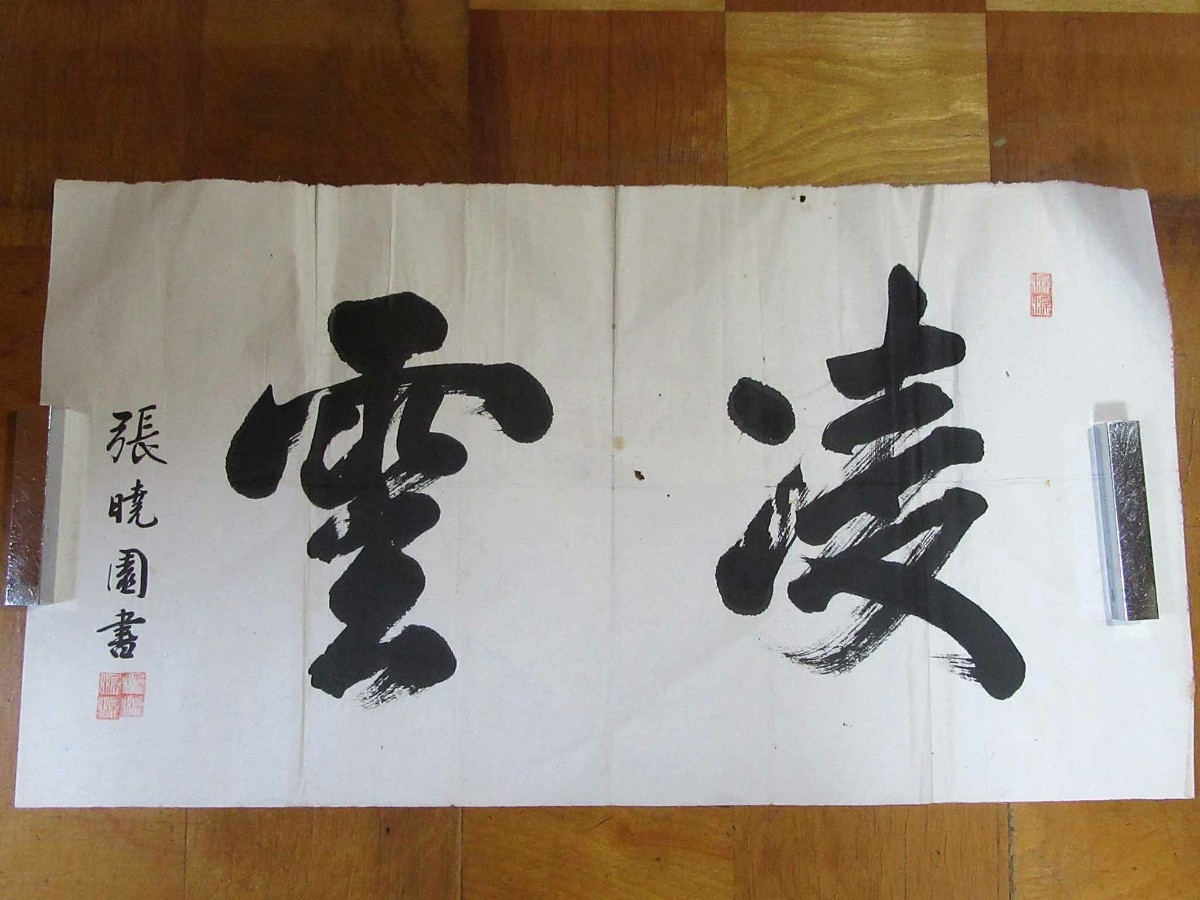 凌雲
張曉園書